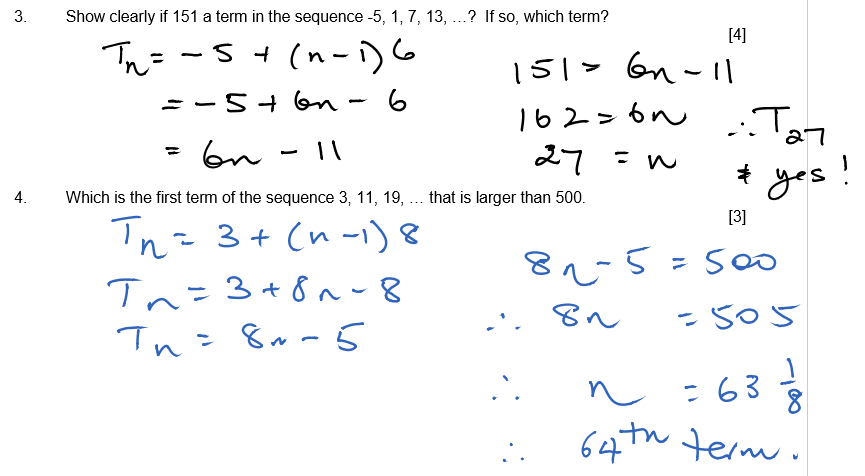 3. Show clearly if 151 a term in the sequence -5, 1, 7, 13, …? If so, which term?
[4]
Tn = -5 + (n-1)6
= -5 + 6n - 6
= 6n - 11
151 = 6n - 11
162 = 6n
27 = n
∴ T27
& yes!
4. Which is the first term of the sequence 3, 11, 19, … that is larger than 500.
[3]
Tn = 3 + (n-1)8
Tn = 3 + 8n - 8
Tn = 8n - 5
8n - 5 = 500
∴ 8n = 505
∴ n = 63 1/8
∴ 64th term.